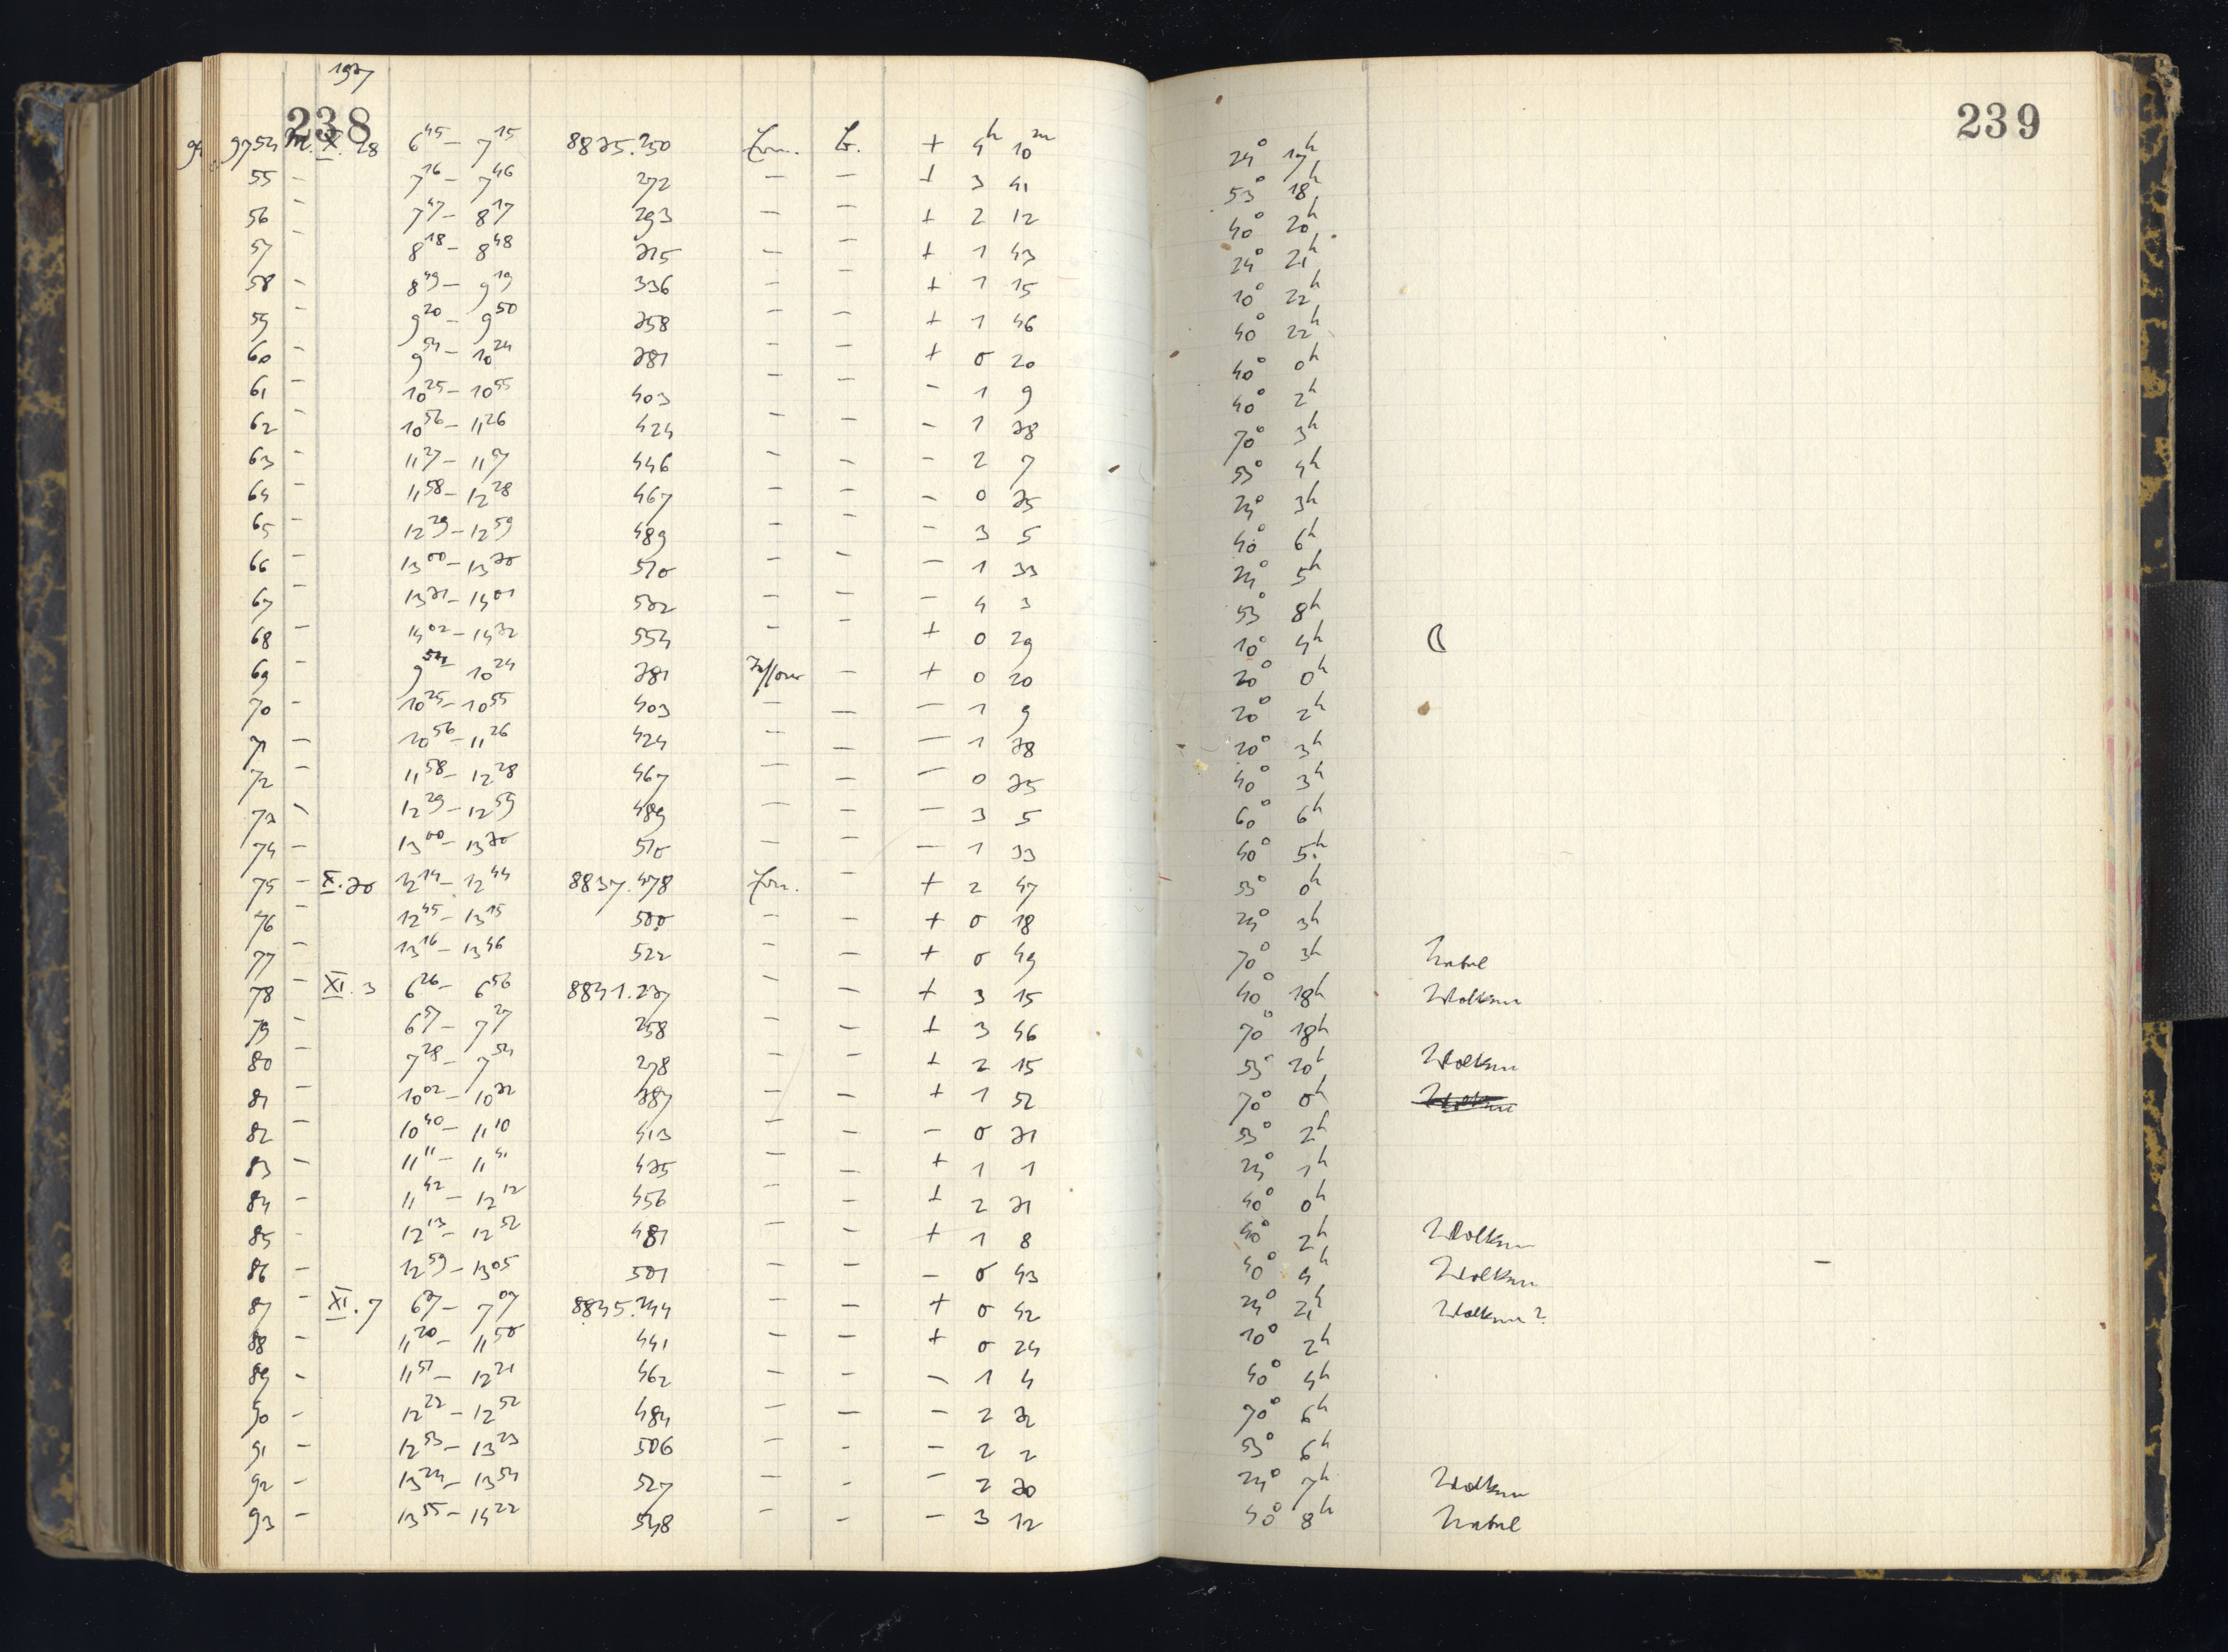 1927
238
239
9754 M. X. 28 6 45 – 7 15 8825.250 + 4 h 10 m 24° 17 h
55 – 7 16 – 7 46 272 – – + 3 41 53° 18 h
56 – 7 47 – 8 17 293 – – + 2 12 40° 20 h
57 – 8 18 – 8 48 315 – – + 1 43 24° 21 h
58 – 8 49 – 9 19 336 – – + 1 15 10° 22 h
59 – 9 20 – 9 50 358 – – + 1 46 40° 22 h
60 – 9 54 – 10 24 381 – – + 0 20 40° 0 h
61 – 10 25 – 10 55 403 – – – 1 9 40° 2 h
62 – 10 56 – 11 26 424 – – – 1 38 70° 3 h
63 – 11 27 – 11 57 446 – – – 2 7 53° 4 h
64 – 11 58 – 12 28 467 – – – 0 35 24° 3 h
65 – 12 29 – 12 59 489 – – – 3 5 40° 6 h
66 – 13 00 – 13 30 510 – – – 1 33 24° 5 h
67 – 13 31 – 14 01 532 – – – 4 3 53° 8 h
68 – 14 02 – 14 32 554 – – + 0 29 10° 4 h ☾
69 – 9 54 – 10 24 381 – + 0 20 20° 0 h
70 – 10 25 – 10 55 403 – – – 1 9 20° 2 h
71 – 10 56 – 11 26 424 – – – 1 38 20° 3 h
72 – 11 58 – 12 28 467 – – – 0 35 40° 3 h
73 – 12 29 – 12 59 489 – – – 3 5 60° 6 h
74 – 13 00 – 13 30 510 – – – 1 33 40° 5 h
75 – X. 30 12 14 – 12 44 8837.478 – + 2 47 53° 0 h
76 – 12 45 – 13 15 500 – – + 0 18 24° 3 h
77 – 13 16 – 13 46 522 – – + 0 49 70° 3 h Nebel
78 – XI. 3 6 26 – 6 56 8841.237 – – + 3 15 40° 18 h Wolken
79 – 6 57 – 7 27 258 – – + 3 46 70° 18 h
80 – 7 28 – 7 54 278 – – + 2 15 53° 20 h Wolken
81 – 10 02 – 10 32 387 – – + 1 52 70° 0 h Wolken
82 – 10 40 – 11 10 413 – – – 0 31 53° 2 h
83 – 11 11 – 11 41 435 – – + 1 1 24° 1 h
84 – 11 42 – 12 12 456 – – + 2 31 40° 0 h
85 – 12 13 – 12 52 481 – – + 1 8 40° 2 h Wolken
86 – 12 59 – 13 05 501 – – – 0 43 40° 4 h Wolken –
87 – XI. 7 6 37 – 7 07 8845.244 – – + 0 42 24° 21 h Wolken?
88 – 11 20 – 11 50 441 – – + 0 24 10° 2 h
89 – 11 51 – 12 21 462 – – – 1 4 40° 4 h
90 – 12 22 – 12 52 484 – – – 2 32 70° 6 h
91 – 12 53 – 13 23 506 – – – 2 2 53° 6 h
92 – 13 24 – 13 54 527 – – – 2 30 24° 7 h Wolken
93 – 13 55 – 14 22 548 – – – 3 12 40° 8 h Nebel